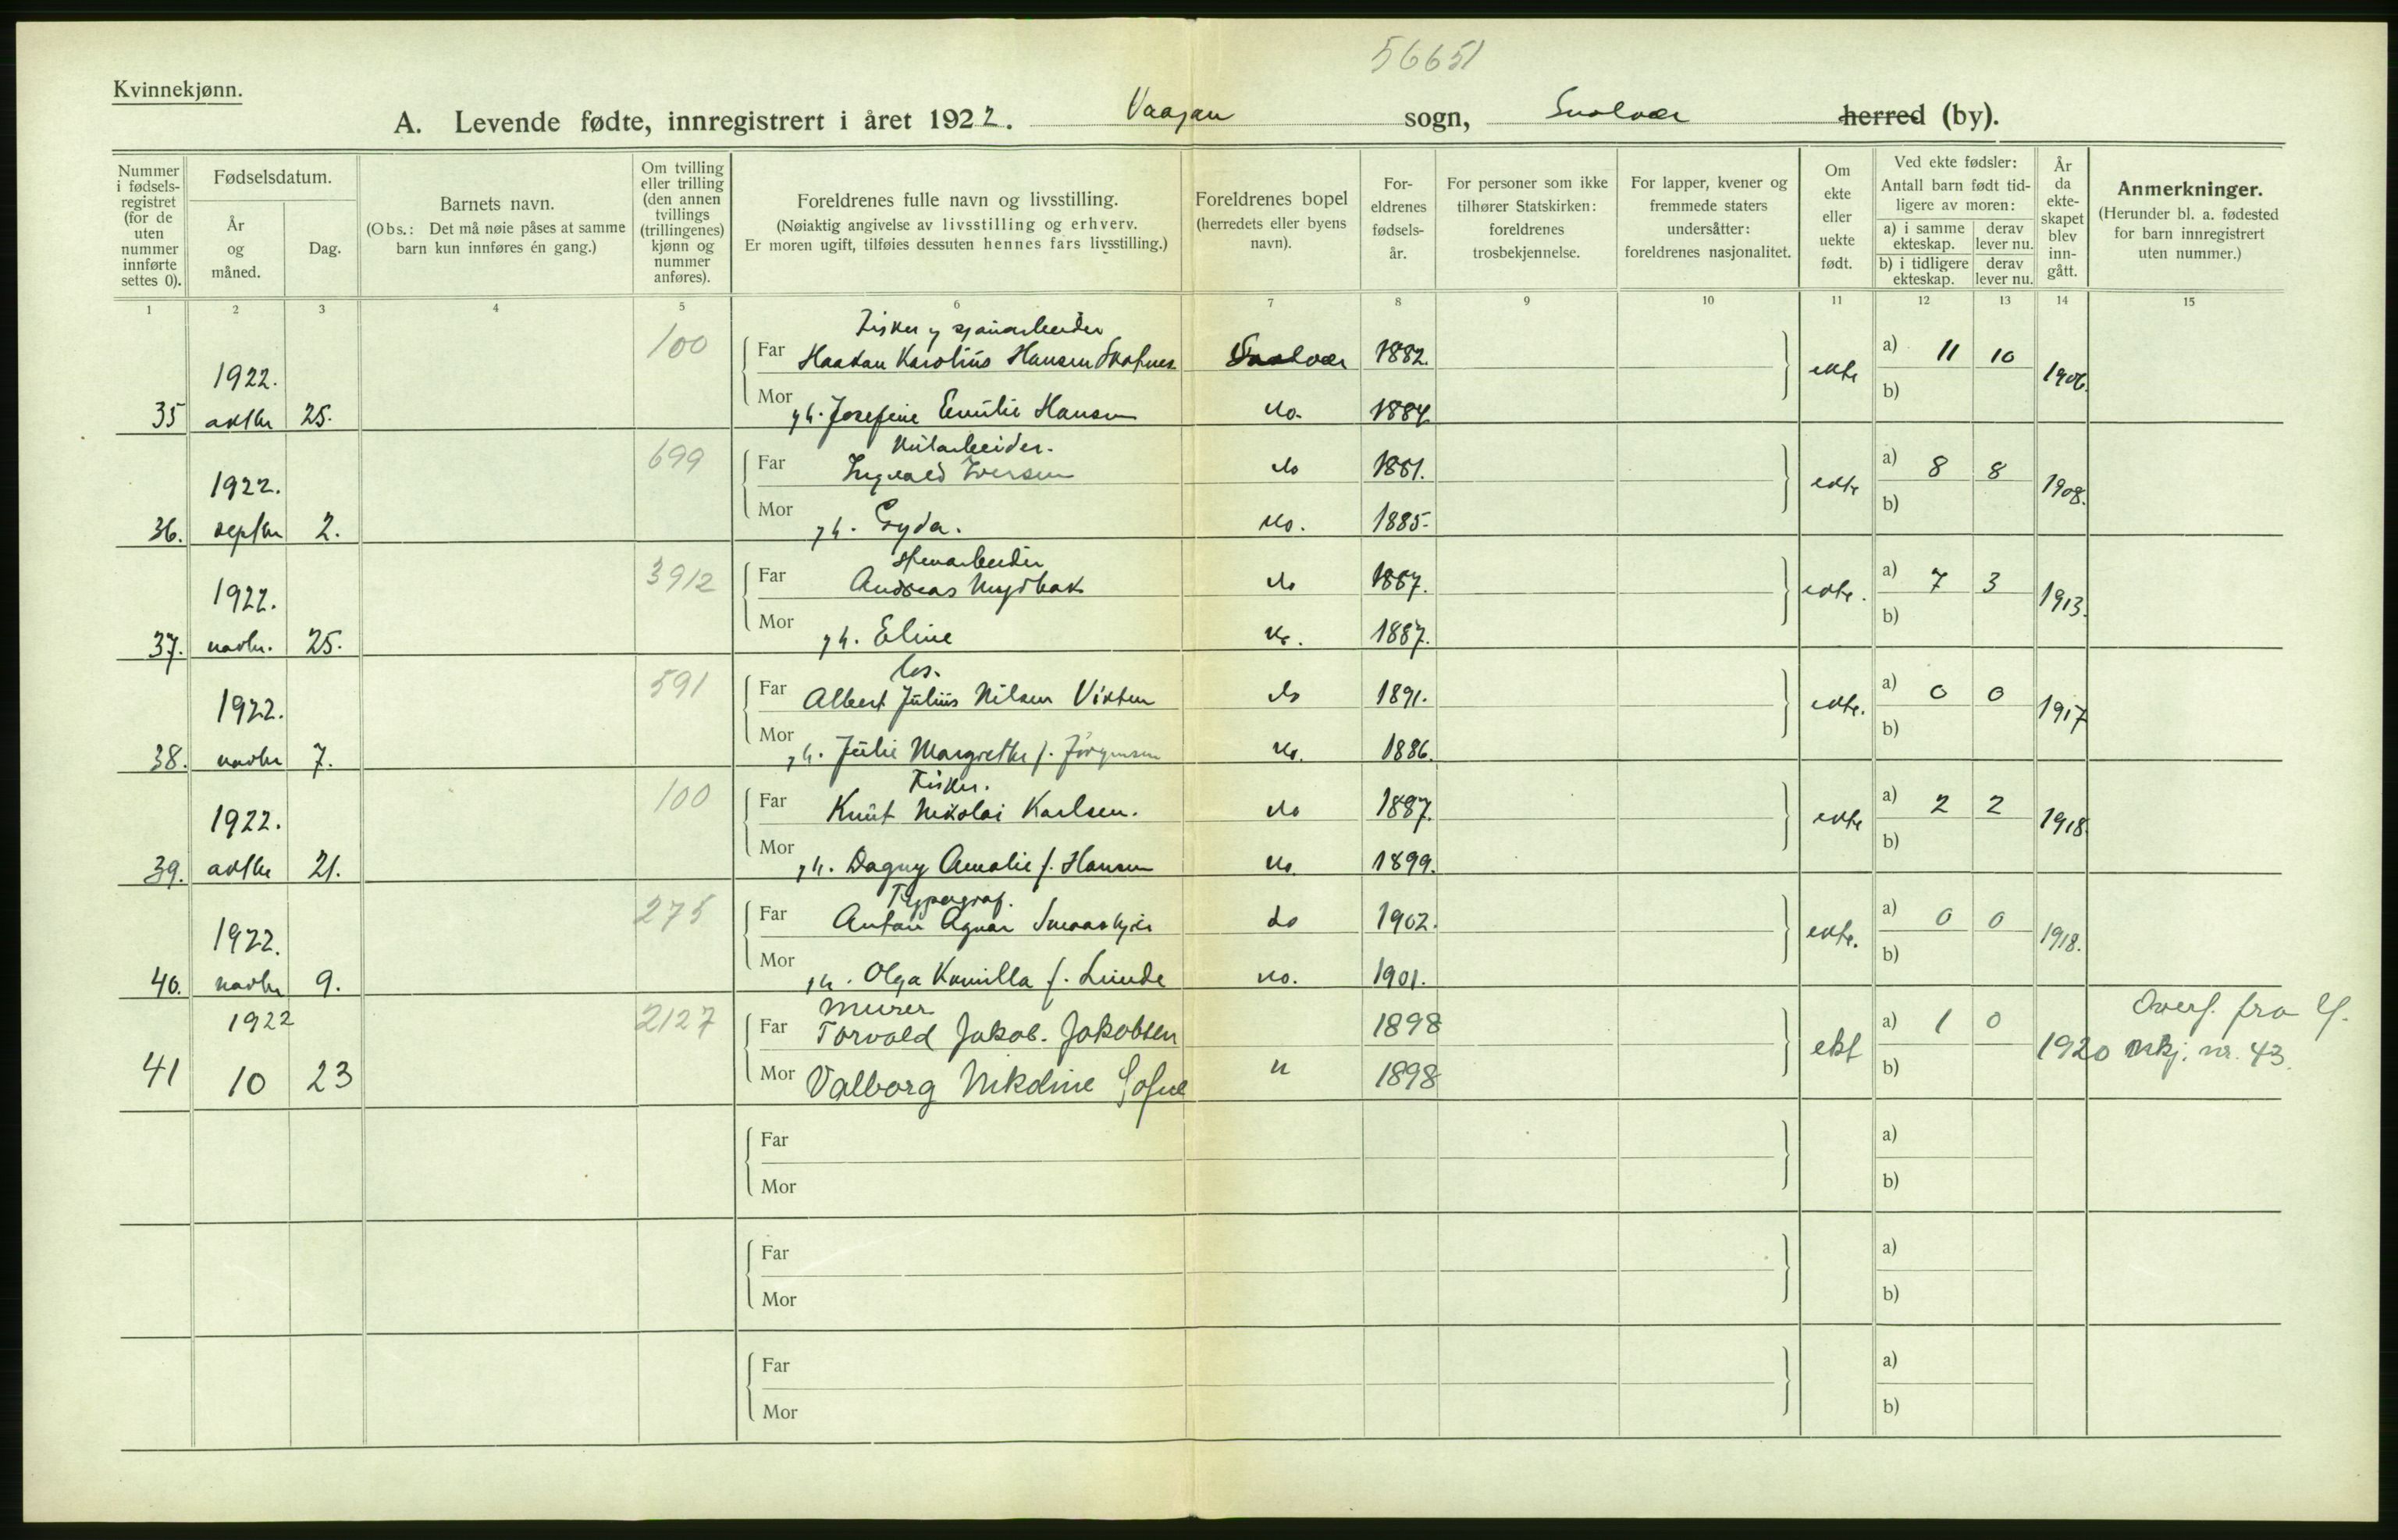 56651
Kvinnekjønn.
A. Levende fødte, innregistrert i året 1922. Vaagan sogn, Svolvær herred (by).
Nummer i fødsels- registret (for de uten nummer innførte settes 0).
Fødselsdatum.
År og måned.
Dag.
Barnets navn.
(Obs.: Det må nøie påses at samme barn kun innføres én gang.)
Om tvilling eller trilling (den annen tvillings (trillingenes) kjønn og nummer anføres).
Foreldrenes fulle navn og livsstilling.
(Nøiaktig angivelse av livsstilling og erhverv.
Er moren ugift, tilføies dessuten hennes fars livsstilling.)
Foreldrenes bopel
(herredets eller byens navn).
For- eldrenes fødsels- år.
For personer som ikke tilhører Statskirken: foreldrenes trosbekjennelse.
For lapper, kvener og fremmede staters undersåtter: foreldrenes nasjonalitet.
Om ekte eller uekte født.
Ved ekte fødsler:
Antall barn født tid- ligere av moren:
a) i samme ekteskap.
derav lever nu.
b) i tidligere ekteskap.
derav lever nu.
År da ekte- skapet blev inn- gått.
Anmerkninger.
(Herunder bl. a. fødested for barn innregistrert uten nummer.)
1 2 3 4 5 6 7 8 9 10 11 12 13 14 15
100 Fisker
1922. Far Haakan Karolius Hansen Svolvær 1882. ekte a) 11 10 1906.
35 oktbr 25. Mor Josefine Emilie Hansen do. 1884. b)
699
1922. Far Ingvald Iversen do 1881. ekte a) 8 8 1908.
36. septbr 2. Mor Gyda. do. 1885. b)
3912 Stenarbeider
1922. Far Andreas do 1887. ekte. a) 7 3 1913.
37. novbr. 25. Mor Eline do. 1887. b)
591 Los.
1922. Far Albert Julius Nilsen Vikten do 1891. ekte. a) 0 0 1917
38. novbr 7. Mor Julie Margrethe f. Jörgensen do. 1886. b)
100 Fisker.
1922. Far Knut Nikolai Karlsen. do 1887. ekte a) 2 2 1918.
39. oktbr 21. Mor Dagny Amalie f. Hansen do. 1899. b)
275 Typograf.
1922. Far Anton Agnar do 1902. ekte. a) 0 0 1918.
40. novbr 9. Mor Olga Kamilla f. Lunde do. 1901. b)
2127 Murer
1922 Far Torvald Jakob. Jakobsen 1898 ekt a) 1 0 1920 Overf. fra
41 10 23 Mor Valborg Nikoline Sofie " 1898 b) mkj. nr. 43.
Far a)
Mor b)
Far a)
Mor b)
Far a)
Mor b)